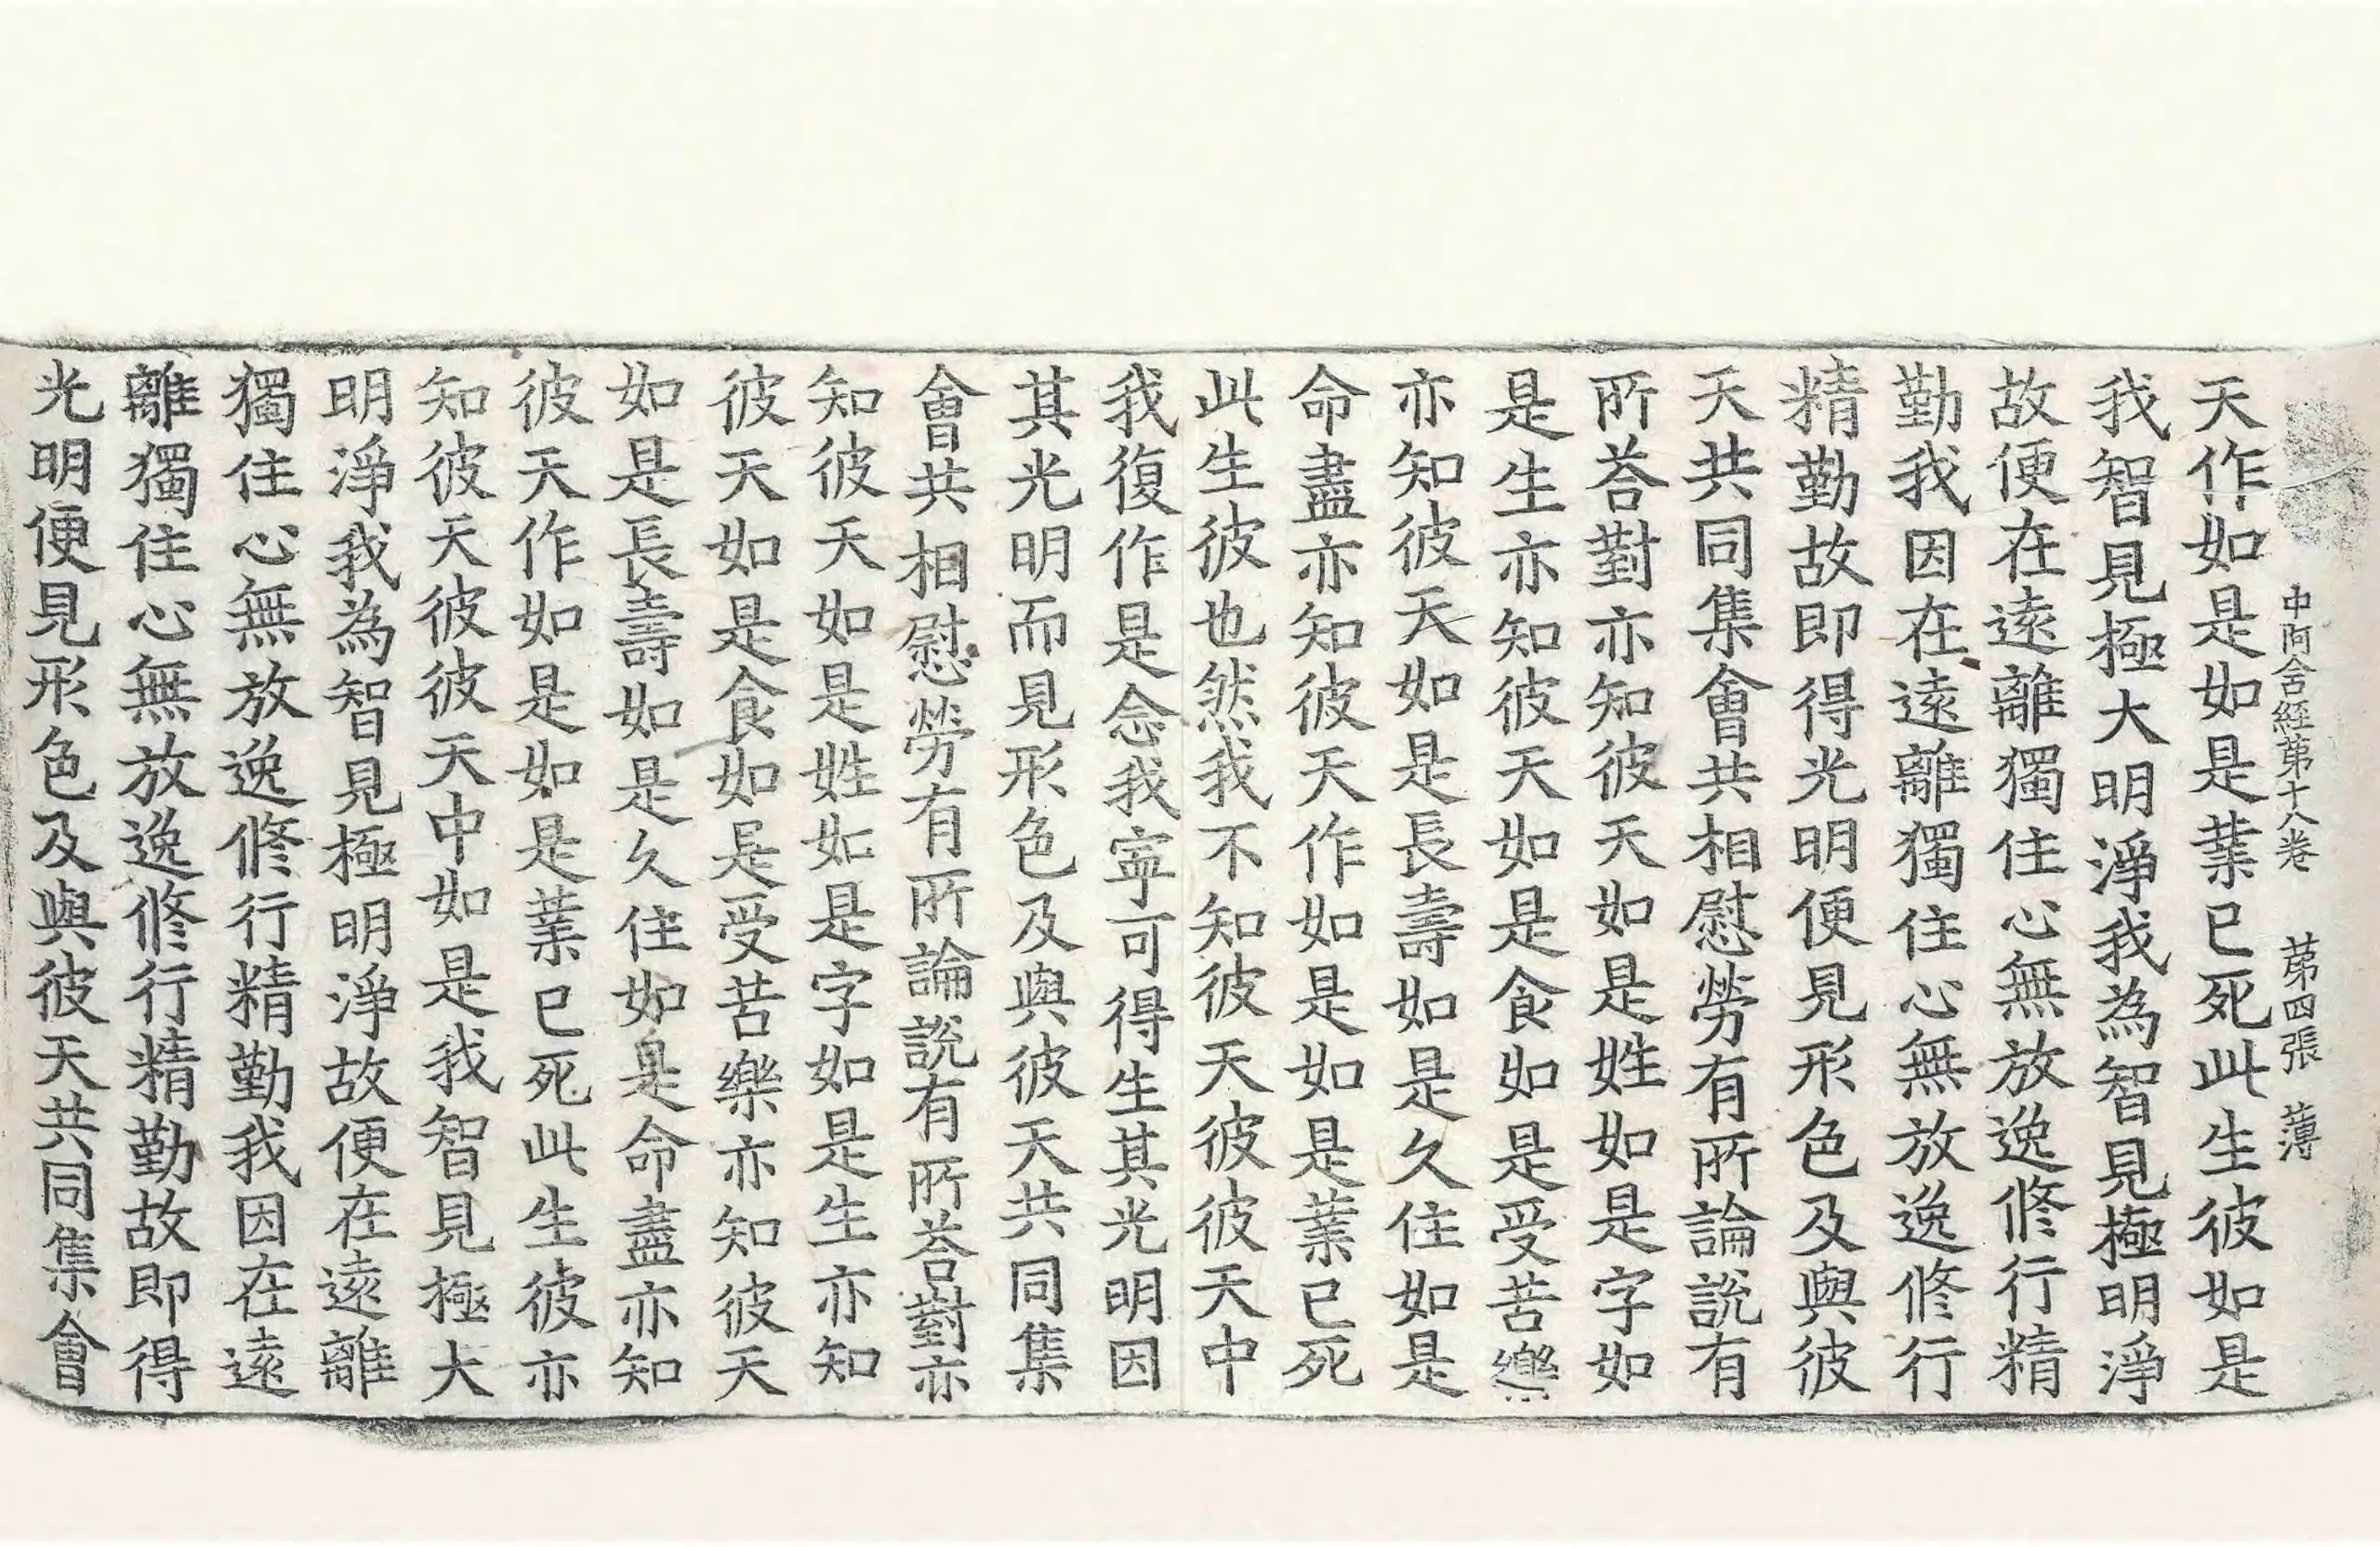 中阿含經第十八卷 第四張 薄
天作如是如是業已死此生彼如是
我智見極大明淨我為智見極明淨
故便在遠離獨住心無放逸修行精
勤我因在遠離獨住心無放逸修行
精勤故即得光明便見形色及與彼
天共同集會共相慰勞有所論說有
所荅對亦知彼天如是姓如是字如
是生亦知彼天如是食如是受苦樂
亦知彼天如是長壽如是久住如是
命盡亦知彼天作如是如是業已死
此生彼也然我不知彼天彼彼天中
我復作是念我寧可得生其光明因
其光明而見形色及與彼天共同集
會共相慰勞有所論說有所荅對亦
知彼天如是姓如是字如是生亦知
彼天如是食如是受苦樂亦知彼天
如是長壽如是久住如是命盡亦知
彼天作如是如是業已死此生彼亦
知彼天彼彼天中如是我智見極大
明淨我為智見極明淨故便在遠離
獨住心無放逸修行精勤我因在遠
離獨住心無放逸修行精勤故即得
光明便見形色及與彼天共同集會